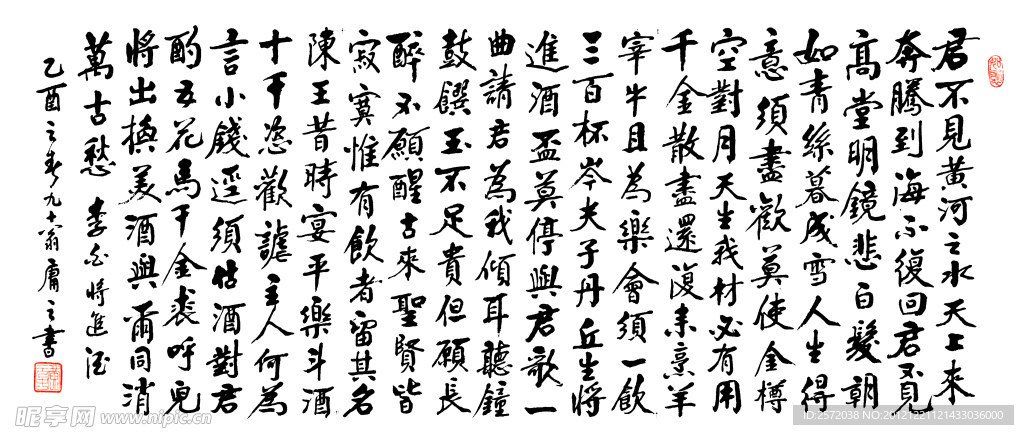 君不見黃河之水天上來
奔騰到海不復回君不見
高堂明鏡悲白髮朝
如青絲暮成雪人生得
意須盡歡莫使金樽
空對月天生我材必有用
千金散盡還復來烹羊
宰牛且為樂會須一飲
三百杯岑夫子丹丘生將
進酒盃莫停與君歌一
曲請君為我傾耳聽鐘
鼓饌玉不足貴但願長
醉不願醒古來聖賢皆
寂寞惟有飲者留其名
陳王昔時宴平樂斗酒
十千恣歡謔主人何為
言小錢逕須沽酒對君
酌五花馬千金裘呼兒
將出換美酒與爾同消
萬古愁 李白將進酒
乙酉之春九十翁庸之書
昵享网 www.nipic.cn
ID:2572038 NO:20121221121433036000